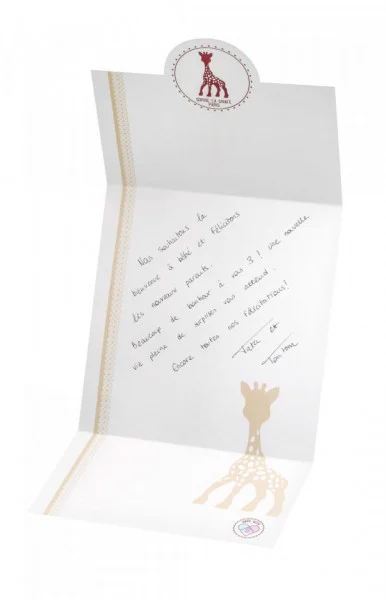 SOPHIE LA GIRAFE
PARIS
Nous souhaitons la
bienvenue à bébé et félicitons
les nouveaux parents.
Beaucoup de bonheur à vous 3 ! une nouvelle
vie pleine de surprises vous attend.
Encore toutes nos félicitations!
et